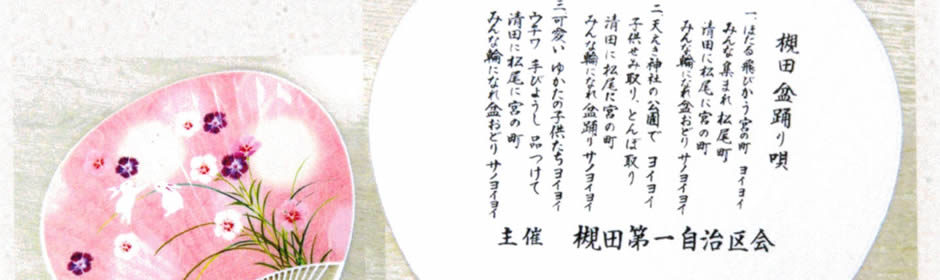 槻田盆踊り唄
一、ほたる飛びかう宮の町 ヨイヨイ
みんな集まれ松尾町
清田に松尾に宮の町
みんな輪になれ盆踊り サノヨイヨイ
二、天大き神社の公園で ヨイヨイ
子供せみ取り、とんぼ取り
清田に松尾に宮の町
みんな輪になれ盆踊り サノヨイヨイ
三、可愛い ゆかたの子供たち ヨイヨイ
ウチワ 手びょうし 品つけて
清田に松尾に宮の町
みんな輪になれ盆おどり サノヨイヨイ
主催 槻田第一自治区会